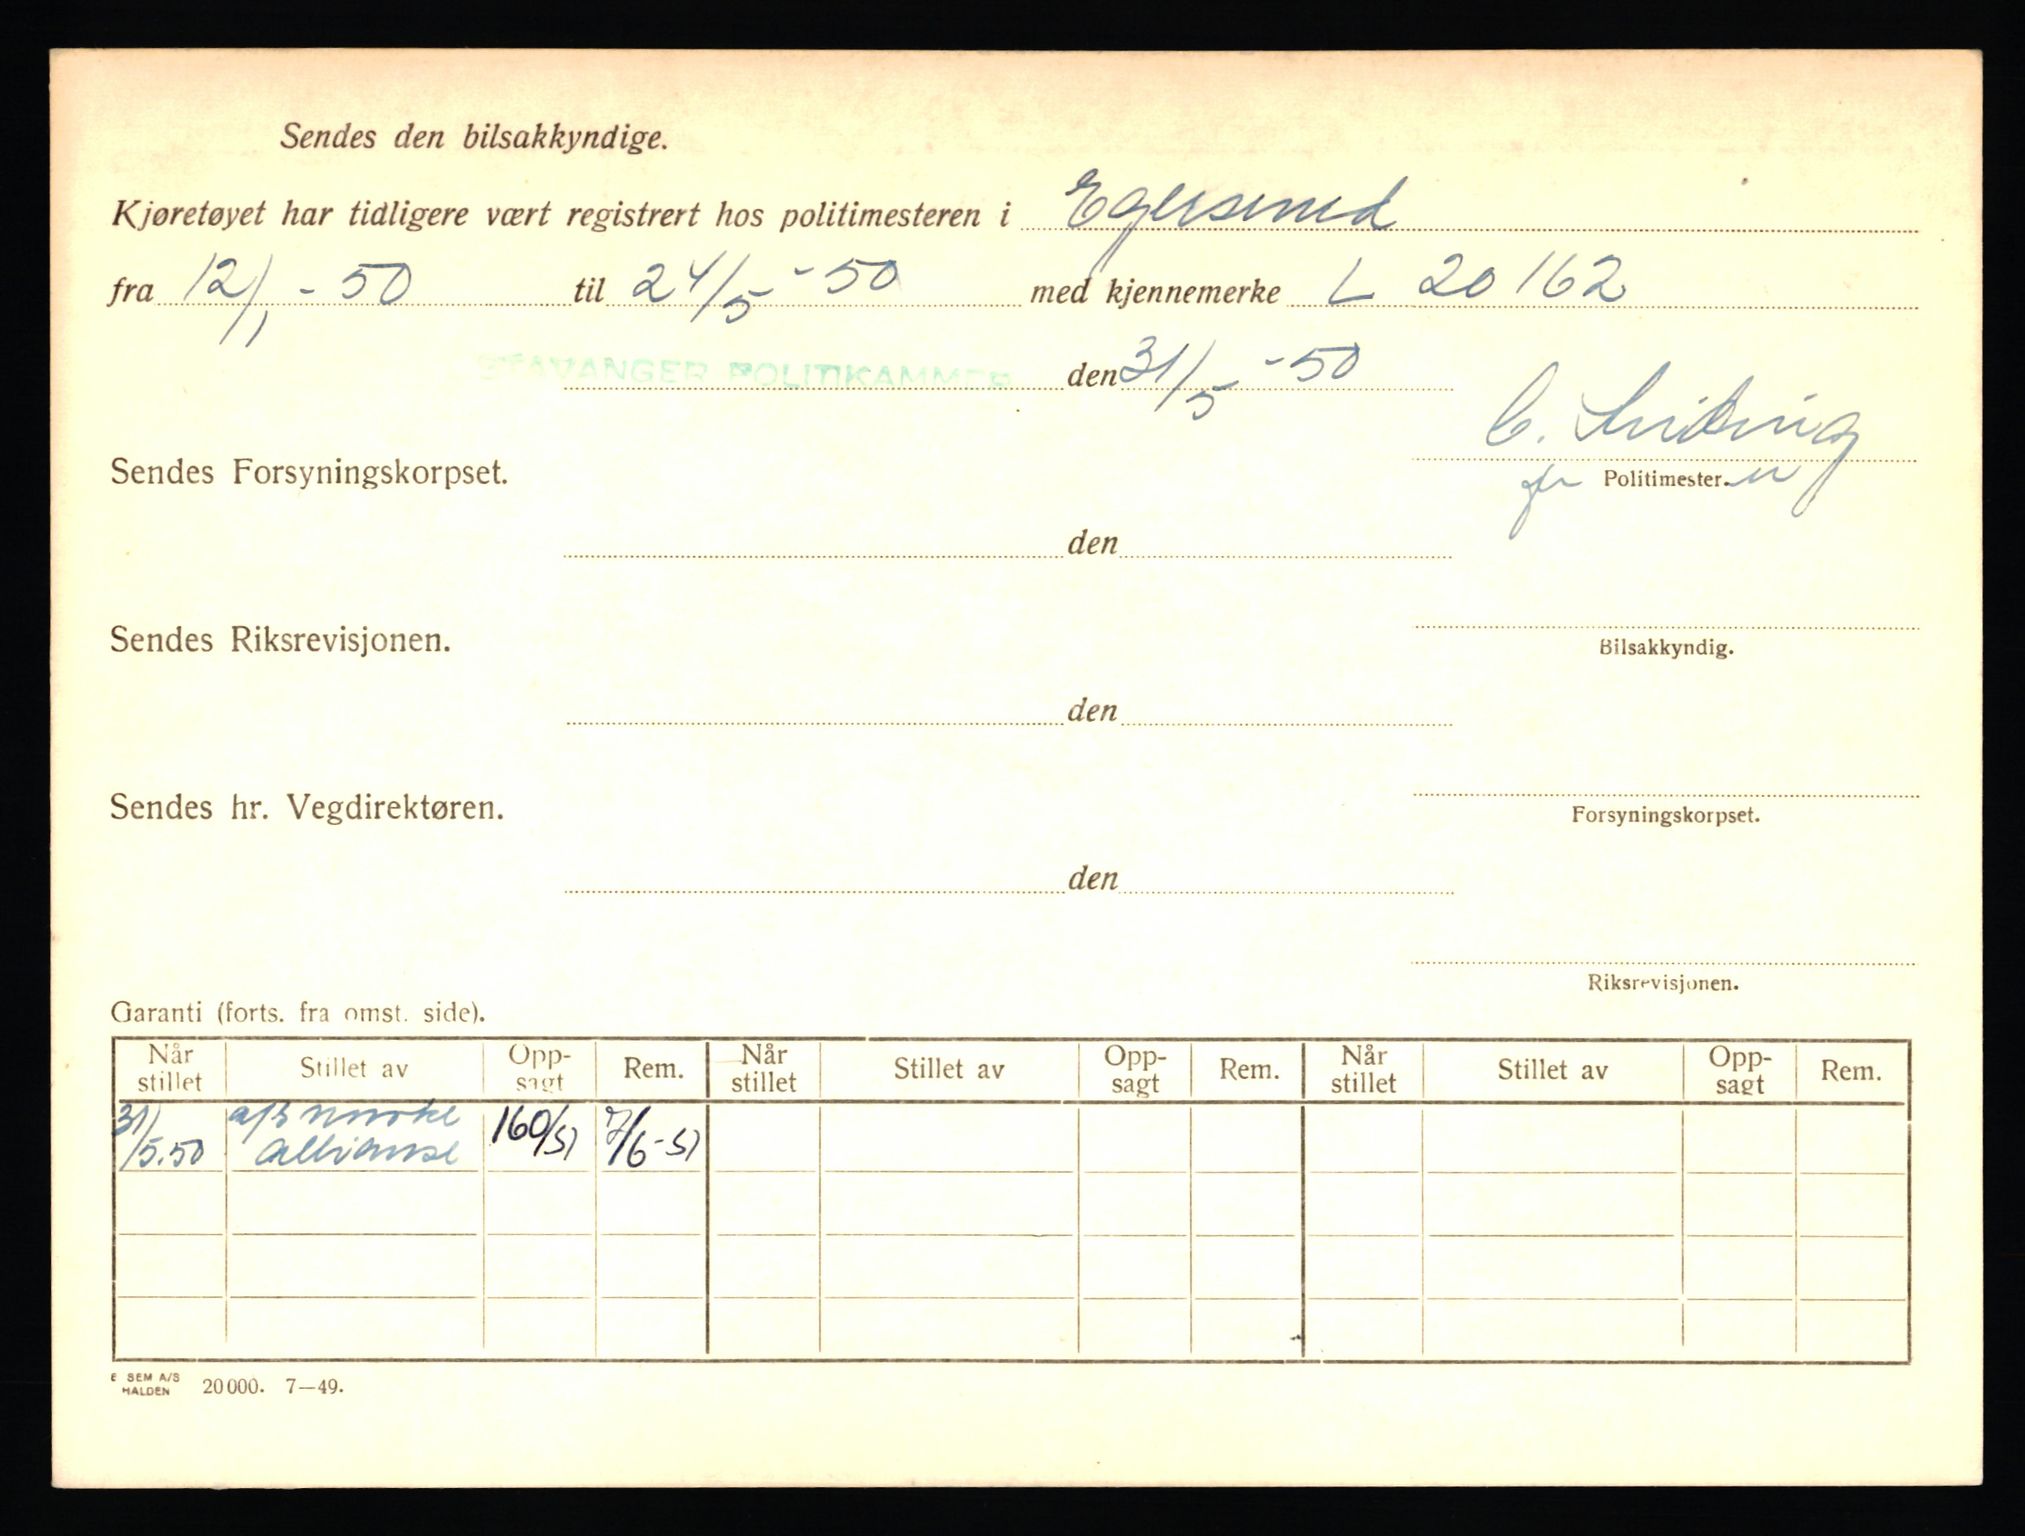 Sendes den bilsakkyndige.
Kjøretøyet har tidligere vært registrert hos politimesteren i Egersund
fra 12/1 - 50 til 24/5 - 50 med kjennemerke L 20162
STAVANGER POLITIKAMMER den 31/5 - 50
C.
Sendes Forsyningskorpset.
for Politimesteren
den
Sendes Riksrevisjonen.
Bilsakkyndig.
den
Sendes hr. Vegdirektøren.
Forsyningskorpset.
den
Riksrevisjonen.
Garanti (forts. fra omst. side).
Når stillet Stillet av Opp-sagt Rem. Når stillet Stillet av Opp-sagt Rem. Når stillet Stillet av Opp-sagt Rem.
31/5.50 a/s norske allianse 160/51 7/6-51
E SEM A/S
HALDEN 20000. 7—49.